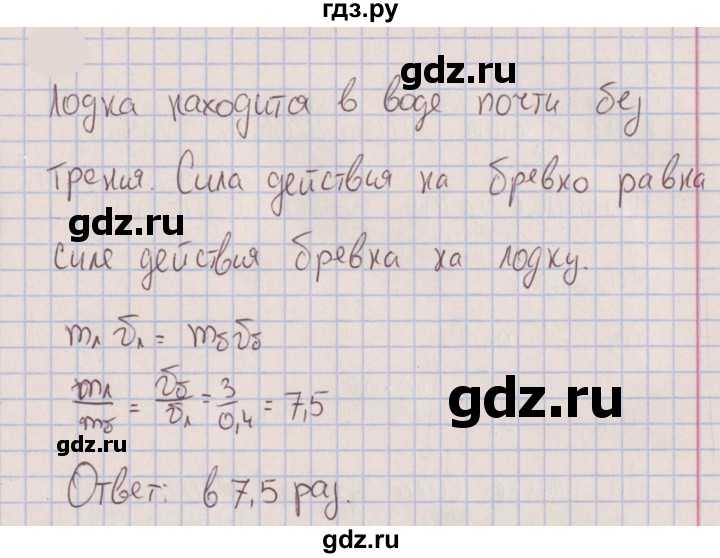 гдз.ру
gdz.ru
Лодка находится в воде почти без
трения. Сила действия на бревно равна
gdz.ru
силе действия бревна на лодку.
gdz.ru
mл vл = mб vб
mл/mб = vб/vл = 3/0,4 = 7,5
gdz.ru
gdz.ru
Ответ: в 7,5 раз.
gdz.ru
гдз.ру